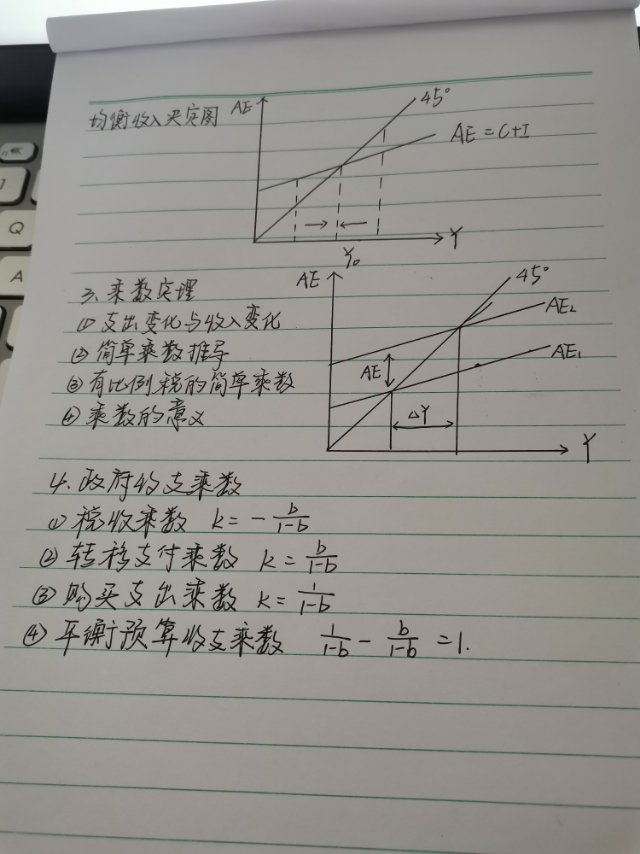 均衡收入决定图
AE
45°
AE = C+I
Y₀
Y
3. 乘数定理
① 支出变化与收入变化
② 简单乘数推导
③ 有比例税的简单乘数
④ 乘数的意义
AE
45°
AE₂
AE₁
AE
ΔY
Y
4. 政府收支乘数
① 税收乘数 k = - b/1-b
② 转移支付乘数 k = b/1-b
③ 购买支出乘数 k = 1/1-b
④ 平衡预算收支乘数 1/1-b - b/1-b = 1.
Q
A